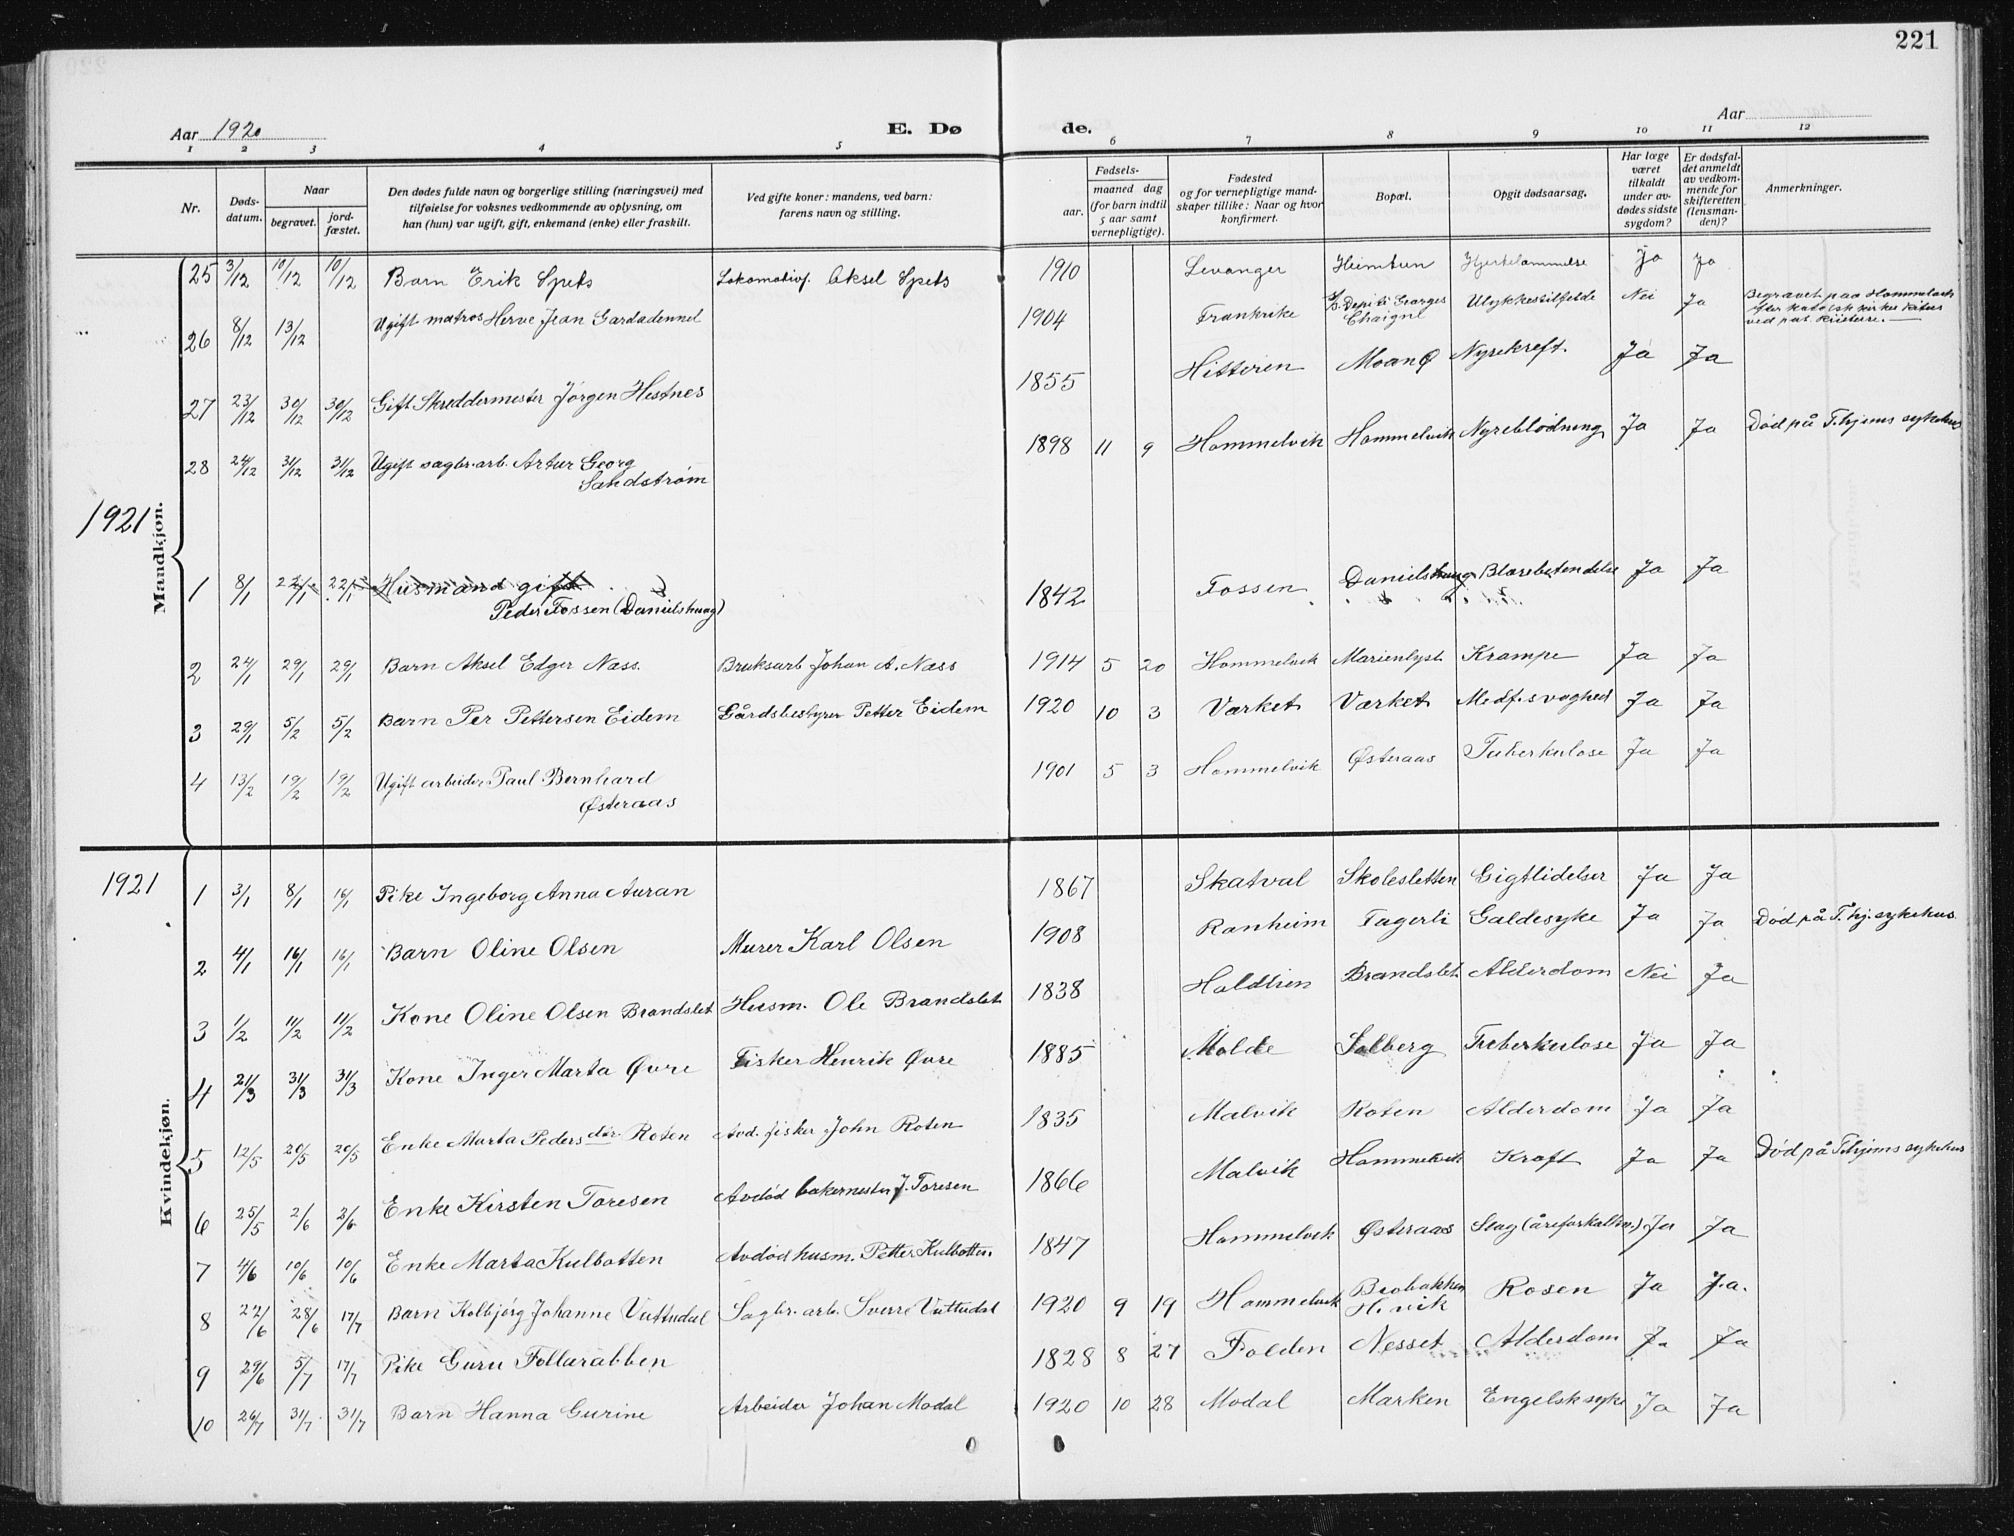 221
Aar 1920
E. Dø
de.
Aar
1 2 3 4 5 6 7 8 9 10 11 12
Nr.
Døds-
datum.
Naar
begravet.
jord-
fæstet.
Den dødes fulde navn og borgerlige stilling (næringsvei) med
tilføielse for voksnes vedkommende av oplysning, om
han (hun) var ugift, gift, enkemand (enke) eller fraskilt.
Ved gifte koner: mandens, ved barn:
farens navn og stilling.
Fødsels-
aar.
maaned dag
(for barn indtil
5 aar samt
vernepligtige).
Fødested
og for vernepligtige mand-
skaper tillike: Naar og hvor
konfirmert.
Bopæl.
Opgit dødsaarsag.
Har læge
været
tilkaldt
under av-
dødes sidste
sygdom?
Er dødsfal-
det anmeldt
av vedkom-
mende for
skifteretten
(lensman-
den)?
Anmerkninger.
Mandkjøn.
25 3/12 10/12 10/12 Barn Erik Spets Lokomotivf. Aksel Spets 1910 Levanger Heimtun Hjertelammelse Ja Ja
26 8/12 13/12 Ugift matros Herve Jean Gardadennel 1904 Frankrike Depité Georges Chaigne Ulykkestilfelde Nei Ja Begravet paa Hommelvik
efter katolsk kirkes ritus
ved pat.
27 23/12 30/12 30/12 Gift Skreddermester Jørgen Hestnes 1855 Hitteren Moan Nyrekreft. Ja Ja
28 24/12 31/12 31/12 Ugift sagbr.arb. Artur Georg
Sandstrøm 1898 11 9 Hommelvik Hommelvik Nyreblødning Ja Ja Død på T.hjems sykehus
1921
1 8/1 22/1 22/1 Husmand gift
Peder Fossen (Danielshaug) 1842 Fossen Danielshaug Blærebetendelse Ja Ja
2 24/1 29/1 29/1 Barn Aksel Edger Næss Bruksarb Johan A. Næss 1914 5 20 Hommelvik Marienlyst Krampe Ja Ja
3 29/1 5/2 5/2 Barn Per Pettersen Eidem Gårdsbestyrer Petter Eidem 1920 10 3 Værket Værket Medf. svaghed Ja Ja
4 13/2 19/2 19/2 Ugift arbeider Paul Bernhard
Østeraas 1901 5 3 Hommelvik Østeraas Tuberkulose Ja Ja
1921
Kvindekjøn.
1 3/1 8/1 16/1 Pike Ingeborg Anna Auran 1867 Skatval Skolesletten Gigtlidelser Ja Ja
2 4/1 16/1 16/1 Barn Oline Olsen Murer Karl Olsen 1908 Ranheim Fagerli Galdesyke Ja Ja Død på T.hj. sykehus
3 1/2 11/2 11/2 Kone Oline Olsen Brandslet Husm. Ole Brandslet 1838 Holdtien Brandslet Alderdom Nei Ja
4 21/3 31/3 31/3 Kone Inger Marta Øvre Fisker Henrik Øvre 1885 Molde Solberg Tuberkulose Ja Ja
5 12/5 20/5 20/5 Enke Marta Pedersdtr. Roten Avd. fisker John Roten 1835 Malvik Roten Alderdom Ja Ja
6 25/5 2/6 2/6 Enke Kirsten Toresen Avdød bakermester J. Toresen 1866 Malvik Hommelvik Kræft Ja Ja Død på T.hjems sykehus
7 4/6 10/6 10/6 Enke Marta Kulbotten Avdød husm. Petter Kulbotten 1847 Hommelvik Østeraas Slag (åreforkalkn.) Ja Ja
8 22/6 28/6 17/7 Barn Kolbjørg Johanne Vuttudal Sagbr. arb. Sverre Vuttudal 1920 9 19 Hommelvik Brobakken
H.vik Rosen Ja Ja.
9 29/6 5/7 17/7 Pike Guru Follarabben 1828 8 27 Folden Nesset Alderdom Ja Ja
10 26/7 31/7 31/7 Barn Hanna Gurine Arbeider Johan Modal 1920 10 28 Modal Marken Engelsk syke Ja Ja